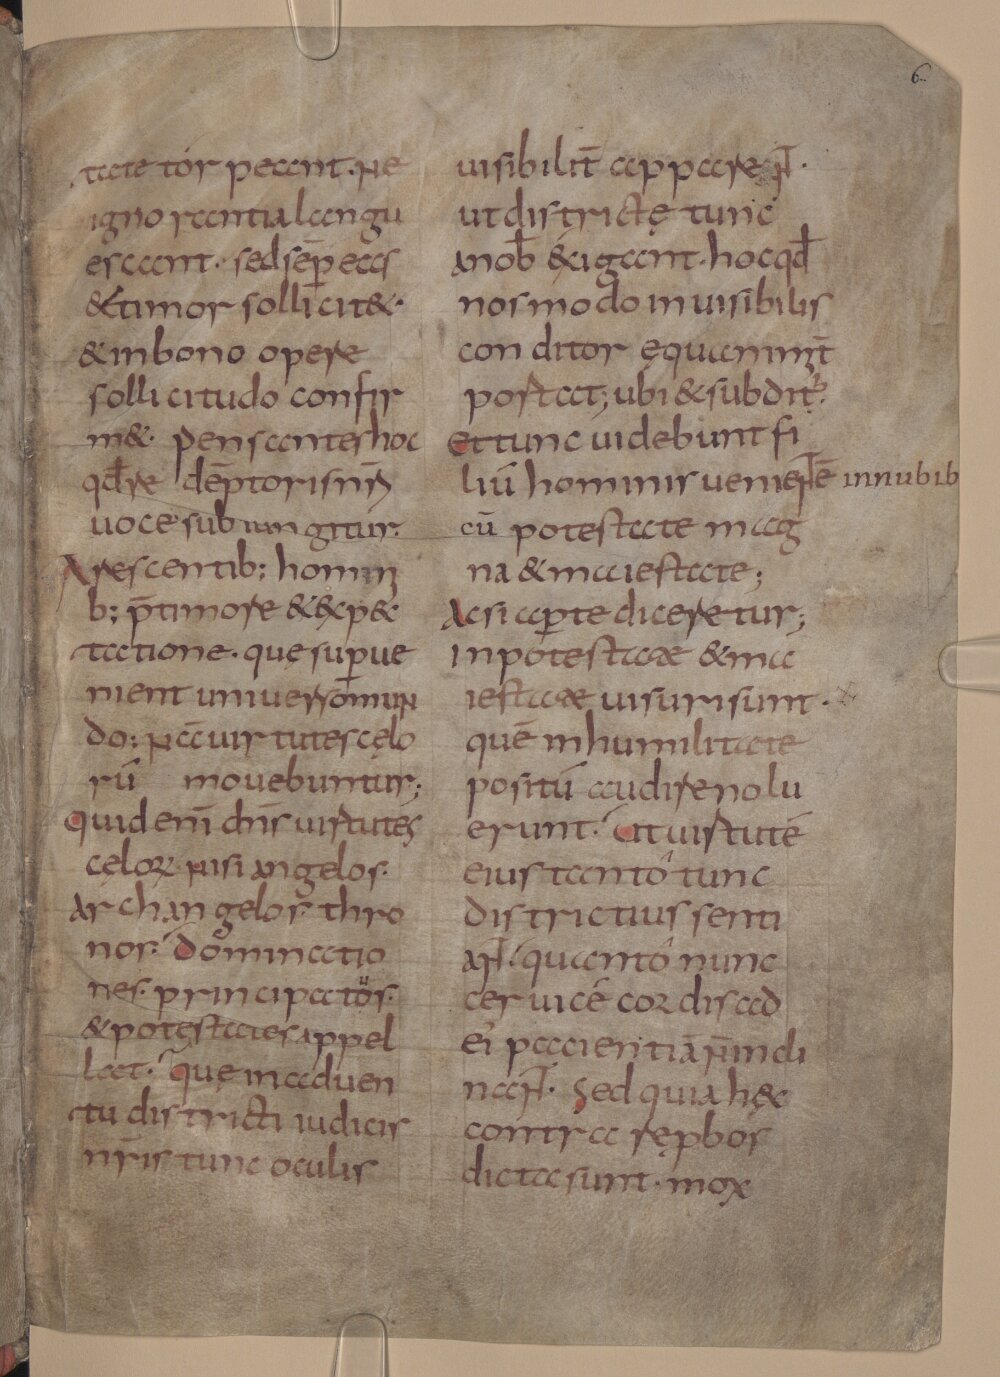 6
tate torpeant. ne
ignorantia langu
escant. sed sēp eas
&timor sollicit&.
&in bono opere
sollicitudo confir
m&. Pensantes hoc
qđ re dēptoris nr̄i
uoce subiungitur.
Arescentib; homini
b; p̄ timore & exp&
tatione. quę supue
nient uniuerso mun
do; Nā uirtutes cęlo
rū mouebuntur;
Quid enī dn̄s uirtutes
cęloꝝ nisi angelos.
Archangelos. thro
nos. dominatio
nes. principatos.
&potestates appel
lat. Quę in aduen
tu districti iudicis
nr̄is tunc oculis
uisibilit̄ apparen̄t.
ut districtę tunc
a nob̄ exigant. hoc qđ
nos modo inuisibilis
conditor ęquanimit̄
portat; ubi & subdit̄.
Et tunc uidebunt fi
liū hominis uenientē in nubib
cū potestate mag
na & maiestate;
Ac si apte diceretur;
In potestate & ma
iestate uisuri sunt.
quē in humilitate
positū audire nolu
erunt. Ut uirtutē
eius tanto tunc
districtius senti
ant. quanto nunc
ceruicē cordis ad
ei pacientiā n̄ incli
nant. Sed quia hęc
contra repbos
dicta sunt. mox